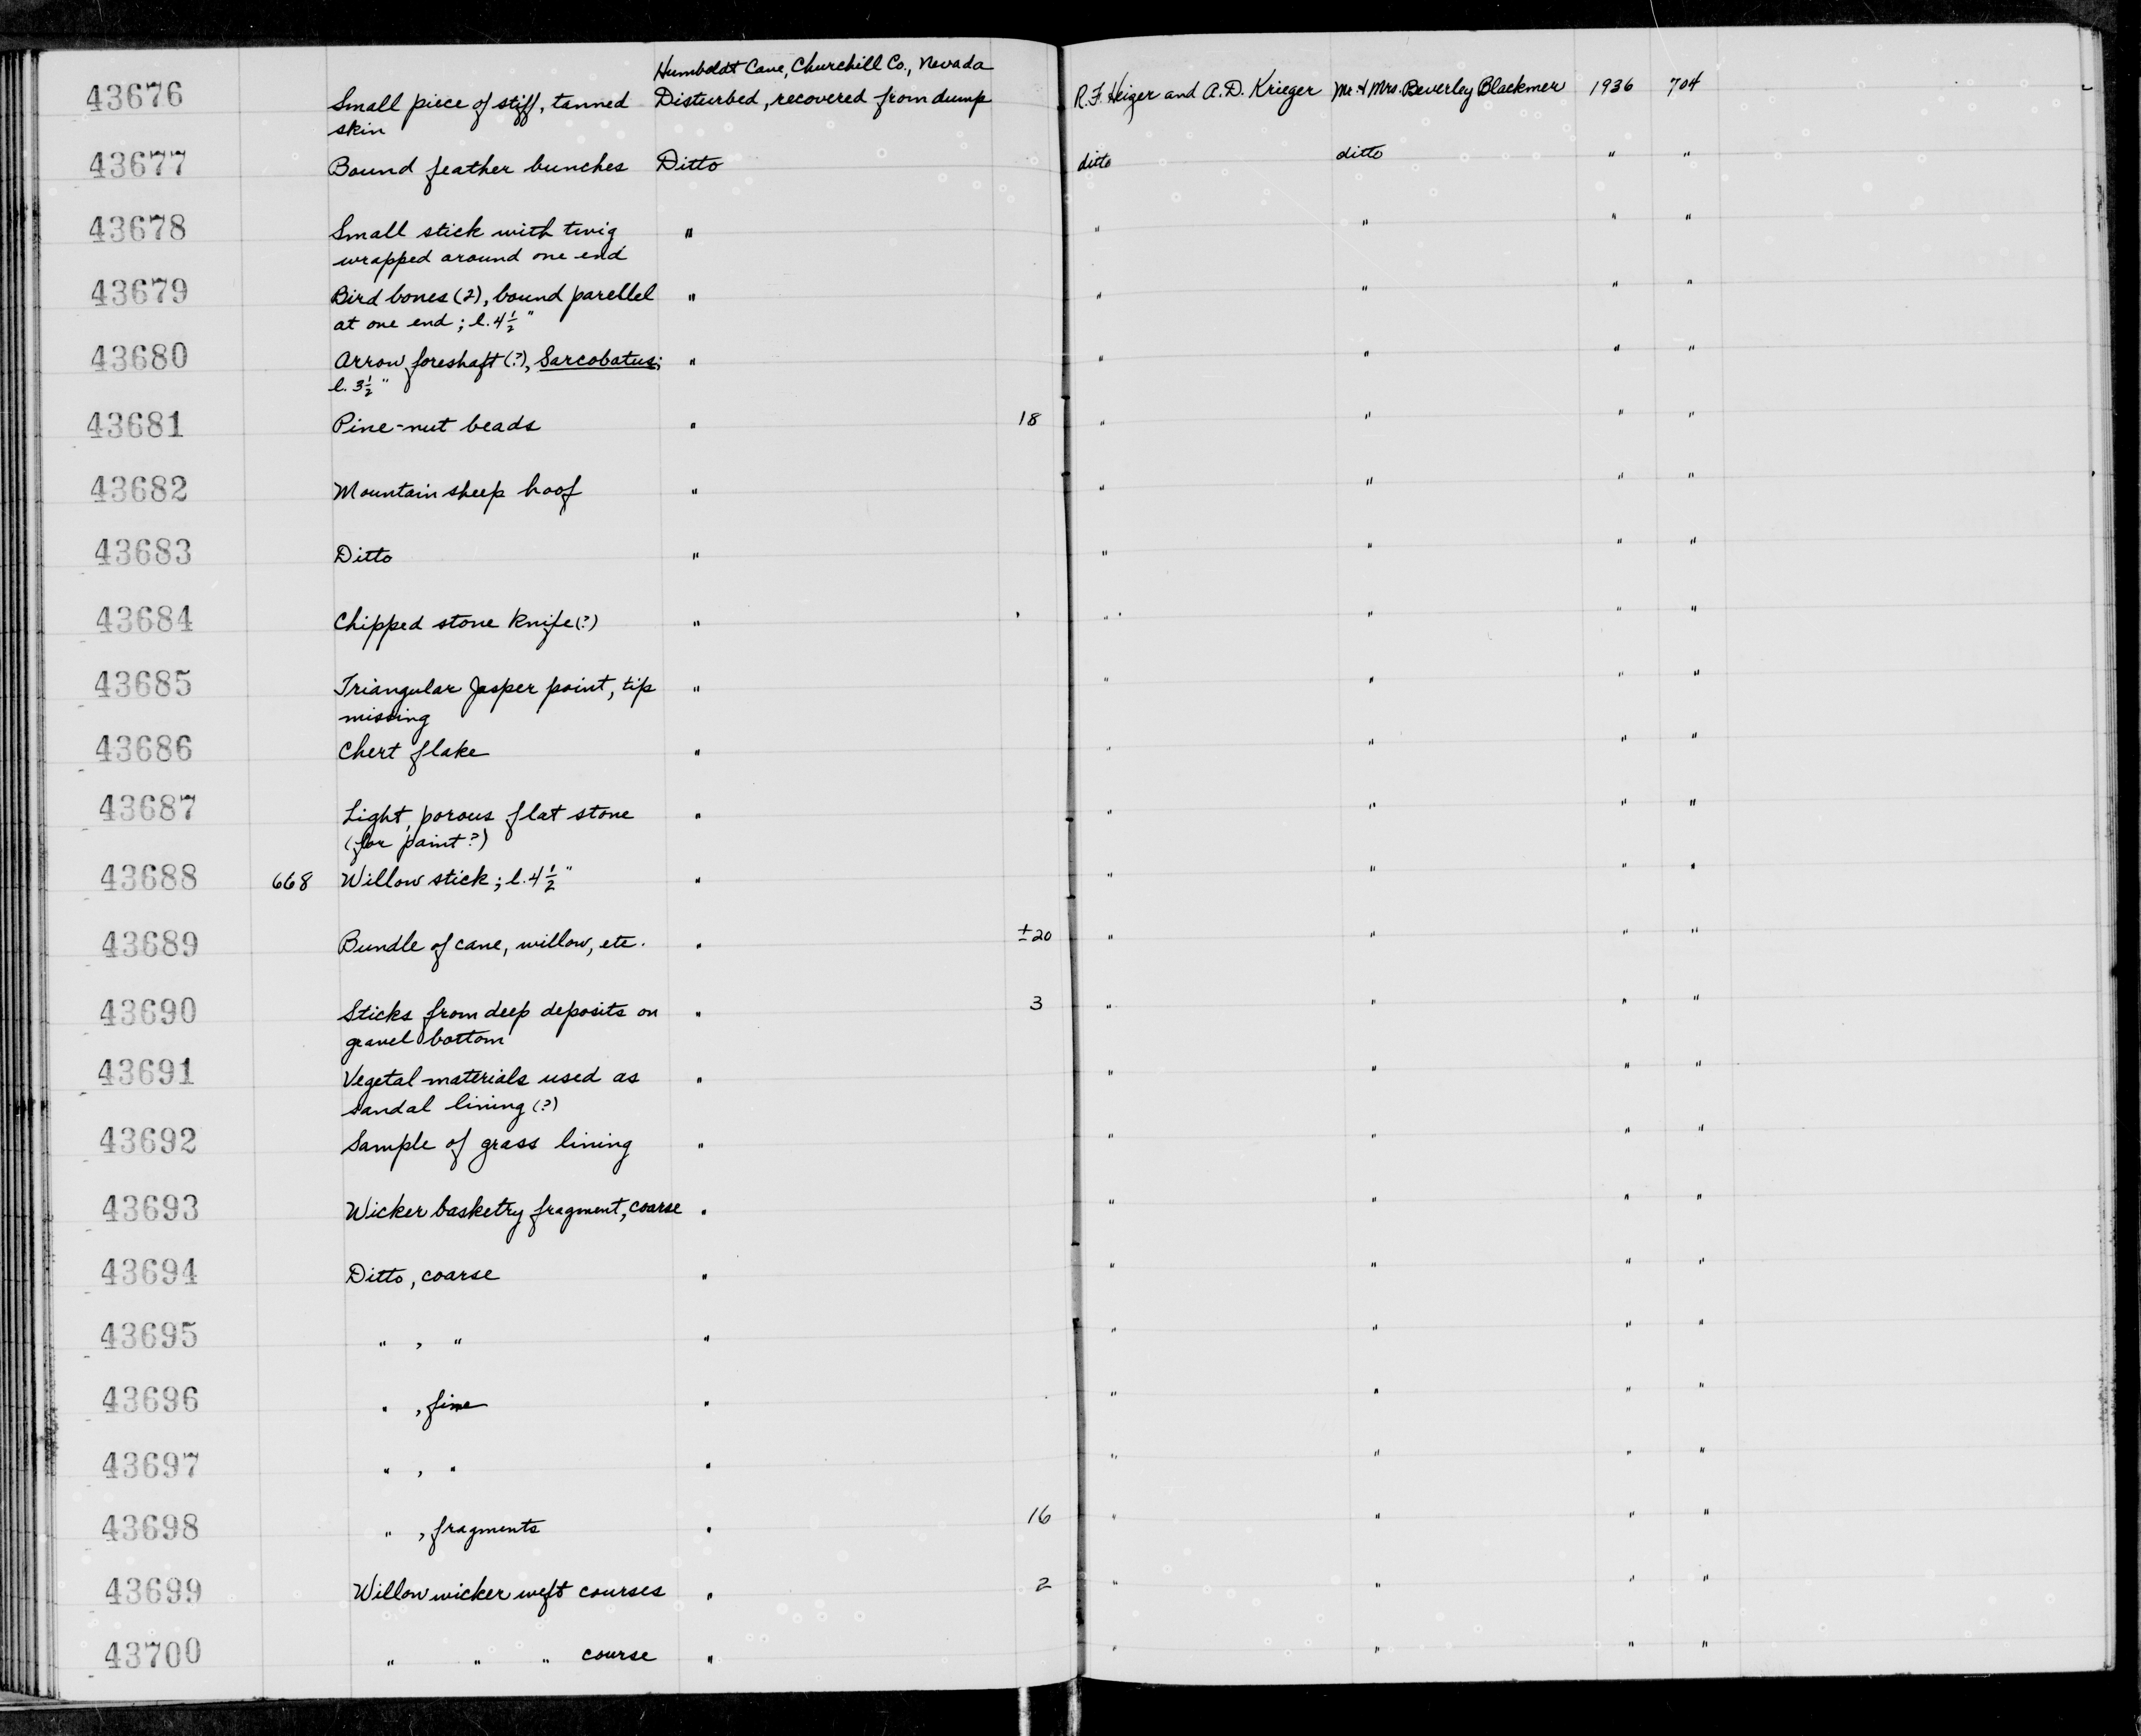 Humboldt Cave, Churchill Co., Nevada
43676 Small piece of stiff, tanned Disturbed, recovered from dump R.F. Heizer and A.D. Krieger Mr. & Mrs. Beverley Blackmer 1936 704
skin
43677 Bound feather bunches Ditto ditto ditto " "
43678 Small stick with twig " " " " "
wrapped around one end
43679 Bird bones (2), bound parellel " " " " "
at one end; l. 4½"
43680 Arrow foreshaft (?), Sarcobatus; " " " " "
l. 3½"
43681 Pine-nut beads " 18 " " " "
43682 Mountain sheep hoof " " " " "
43683 Ditto " " " " "
43684 Chipped stone knife (?) " " " " "
43685 Triangular Jasper point, tip " " " " "
missing
43686 Chert flake " " " " "
43687 Light, porous flat stone " " " " "
(for paint?)
43688 668 Willow stick; l. 4½" " " " " "
43689 Bundle of cane, willow, etc. " ±20 " " " "
43690 Sticks from deep deposits on " 3 " " " "
gravel bottom
43691 Vegetal materials used as " " " " "
sandal lining (?)
43692 Sample of grass lining " " " " "
43693 Wicker basketry fragment, coarse " " " " "
43694 Ditto, coarse " " " " "
43695 " , " " " " " "
43696 " , fine " " " " "
43697 " , " " " " " "
43698 " , fragments " 16 " " " "
43699 Willow wicker weft courses " 2 " " " "
43700 " " " course " " " " "